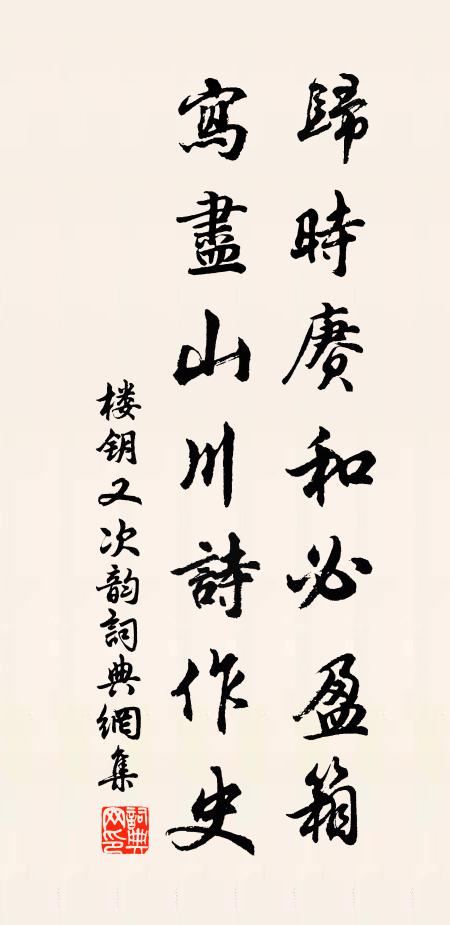 歸時赓和必盈箱
寫盡山川詩作史
楼钥又次韵詞典網集
詞典网印